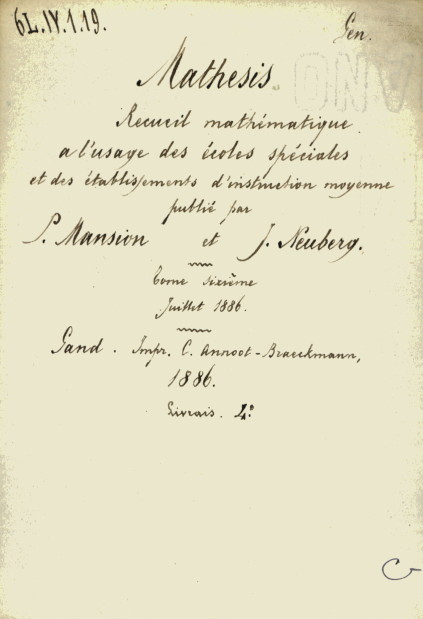 6L.IV.1.19.
Gen.
Mathesis.
Recueil mathématique
a l'usage des écoles spéciales
et des établissements d'instruction moyenne
publié par
P. Mansion et J. Neuberg.
Tome sixième
Juillet 1886.
Gand. Impr. C. Annoot-Braeckmann,
1886.
Livrais. 4º